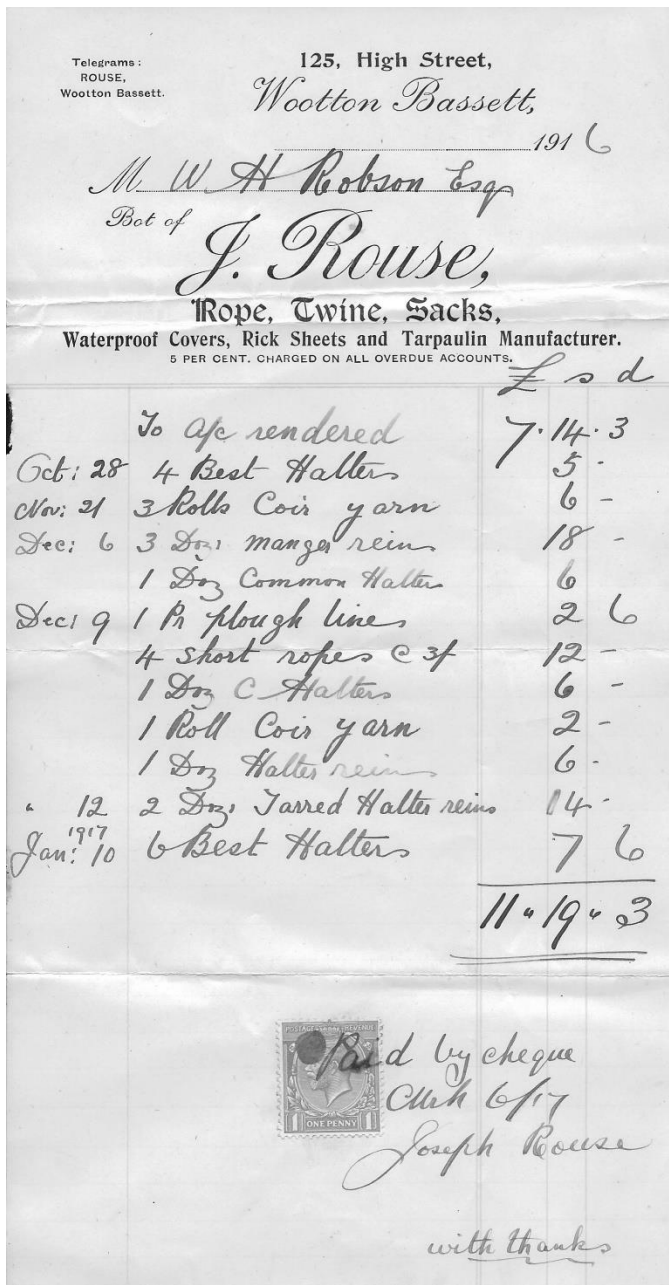 Telegrams:
ROUSE,
Wootton Bassett.
125, High Street,
Wootton Bassett,
1916
M W H Robson Esq
Bot of
J. Rouse,
Rope, Twine, Sacks,
Waterproof Covers, Rick Sheets and Tarpaulin Manufacturer.
5 PER CENT. CHARGED ON ALL OVERDUE ACCOUNTS.
£ s d
To a/c rendered 7·14·3
Oct: 28 4 Best Halters 5 -
Nov: 21 3 Rolls Coir yarn 6 -
Dec: 6 3 Doz: manger reins 18 -
1 Doz Common Halters 6
Dec: 9 1 Pr plough lines 2 6
4 short ropes @ 3/ 12 -
1 Doz C Halters 6 -
1 Roll Coir yarn 2 -
1 Doz Halter reins 6 -
" 12 2 Doz: Tarred Halter reins 14 -
1917
Jan: 10 6 Best Halters 7 6
11 " 19 " 3
POSTAGE & INLAND REVENUE
Paid by cheque
6/17
ONE PENNY
Joseph Rouse
with thanks